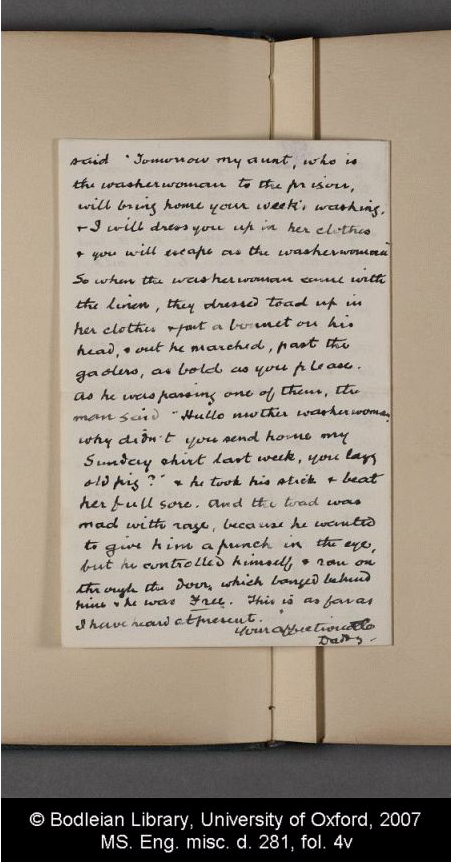 said "Tomorrow my aunt, who is
the washerwoman to the prison,
will bring home your week's washing,
& I will dress you up in her clothes
& you will escape as the washerwoman"
So when the washerwoman came with
the linen, they dressed toad up in
her clothes & put a bonnet on his
head, & out he marched, past the
gaolers, as bold as you please.
As he was passing one of them, the
man said "Hullo mother washerwoman,
why didn't you send home my
Sunday shirt last week, you lazy
old pig?" & he took his stick & beat
her full sore. And the toad was
mad with rage, because he wanted
to give him a punch in the eye,
but he controlled himself & ran on
through the door, which banged behind
him & he was Free. This is as far as
I have heard at present.
Your affectionate
Daddy.
© Bodleian Library, University of Oxford, 2007
MS. Eng. misc. d. 281, fol. 4v